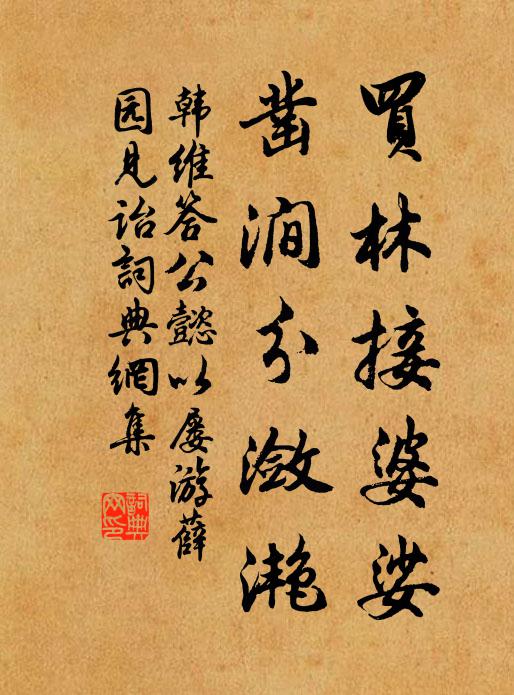 買林接婆娑
凿涧分潋滟
韩维答公懿以屡游薛
园见诒詞典網集
詞典網印